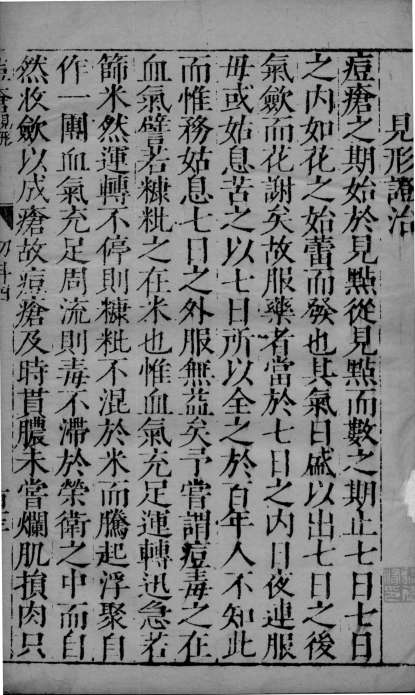 見形證治
痘瘡之期始於見點從見點而數之期止七日七日
之内如花之始蕾而發也其氣日盛以出七日之後
氣歛而花謝矣故服藥者當於七日之内日夜連服
毋或姑息苦之以七日所以全之於百年人不知此
而惟務姑息七日之外服無益矣予嘗謂痘毒之在
血氣譬若糠粃之在米也惟血氣充足運轉迅急若
篩米然運轉不停則糠粃不混於米而騰起浮聚自
作一團血氣充足周流則毒不滯於榮衛之中而自
然收歛以成瘡故痘瘡及時貫膿未嘗爛肌損肉只